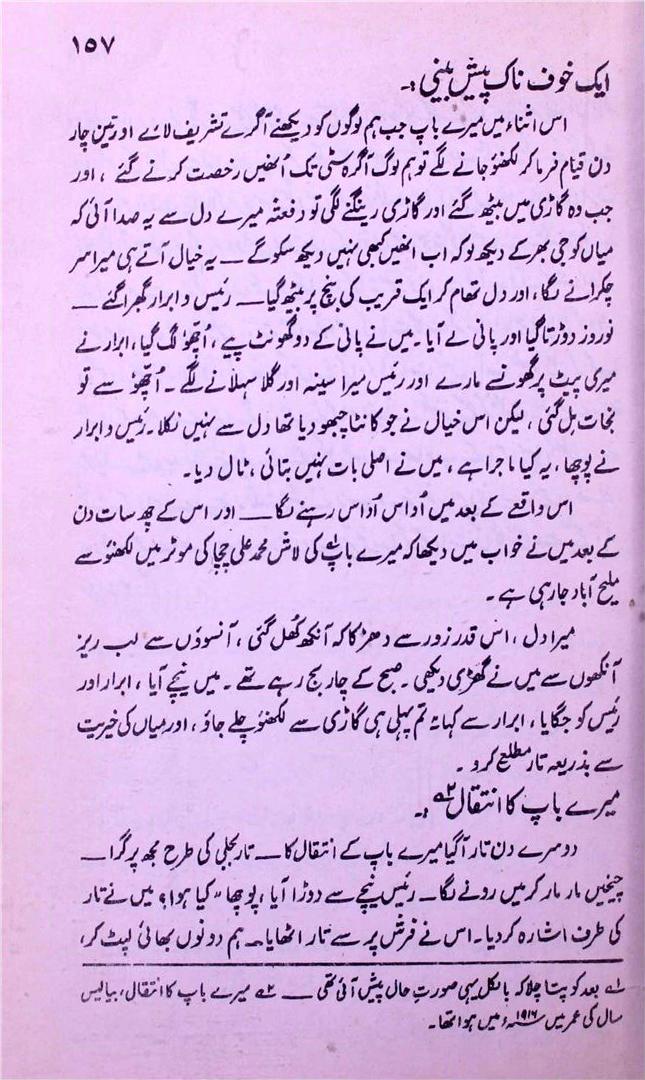 ۱۵۷
ایک خوف ناک پیش بینی :-
اس اثناء میں میرے باپ جب ہم لوگوں کو دیکھنے آگرے تشریف لائے اور تین چار
دن قیام فرما کر لکھنؤ جانے لگے تو ہم لوگ آگرہ سٹی تک اُنھیں رخصت کرنے گئے ، اور
جب وہ گاڑی میں بیٹھ گئے اور گاڑی رینگنے لگی تو دفعتہً میرے دل سے یہ صدا آئی کہ
میاں کو جی بھر کے دیکھ لو کہ اب انھیں کبھی نہیں دیکھ سکو گے — یہ خیال آتے ہی میرا سر
چکرانے لگا ، اور دل تھام کر ایک قریب کی بنچ پر بیٹھ گیا — رئیس و ابرار گھبرا گئے —
نوروز دوڑتا گیا اور پانی لے آیا ۔ میں نے پانی کے دو گھونٹ پیے ، اُچھّو لگ گیا ، ابرار نے
میری پیٹ پر گھونسے مارے اور رئیس میرا سینہ اور گلا سہلانے لگے ۔ اُچھّو سے تو
نجات مل گئی ، لیکن اس خیال نے جو کانٹا چبھو دیا تھا دل سے نہیں نکلا ۔ رئیس و ابرار
نے پوچھا ، یہ کیا ماجرا ہے ، میں نے اصلی بات نہیں بتائی ، ٹال دیا ۔
اس واقعے کے بعد میں اُداس اُداس رہنے لگا — اور اس کے چھ سات دن
کے بعد میں نے خواب میں دیکھا کہ میرے باپ۱ کی لاش محمد علی چچا کی موٹر میں لکھنؤ سے
ملیح آباد جا رہی ہے ۔
میرا دل ، اس قدر زور سے دھڑکا کہ آنکھ کُھل گئی ، آنسوؤں سے لب ریز
آنکھوں سے میں نے گھڑی دیکھی ۔ صبح کے چار بج رہے تھے ۔ میں نیچے آیا ، ابرار اور
رئیس کو جگایا ، ابرار سے کہا تم پہلی ہی گاڑی سے لکھنؤ چلے جاؤ ، اور میاں کی خیریت
سے بذریعہ تار مطلع کرو ۔
میرے باپ کا انتقال۲ :-
دوسرے دن تار آ گیا میرے باپ کے انتقال کا — تار بجلی کی طرح مجھ پر گرا —
چیخیں مار مار کر میں رونے لگا — رئیس نیچے سے دوڑا آیا ، پوچھا "کیا ہوا؟ میں نے تار
کی طرف اشارہ کر دیا ۔ اس نے فرش پر سے تار اٹھایا — ہم دونوں بھائی لپٹ کر ،
۱ بعد کو پتا چلا کہ بالکل یہی صورتِ حال پیش آئی تھی — ۲ میرے باپ کا انتقال ، بیالیس
سال کی عمر میں ۱۹۱۶ء میں ہوا تھا ۔